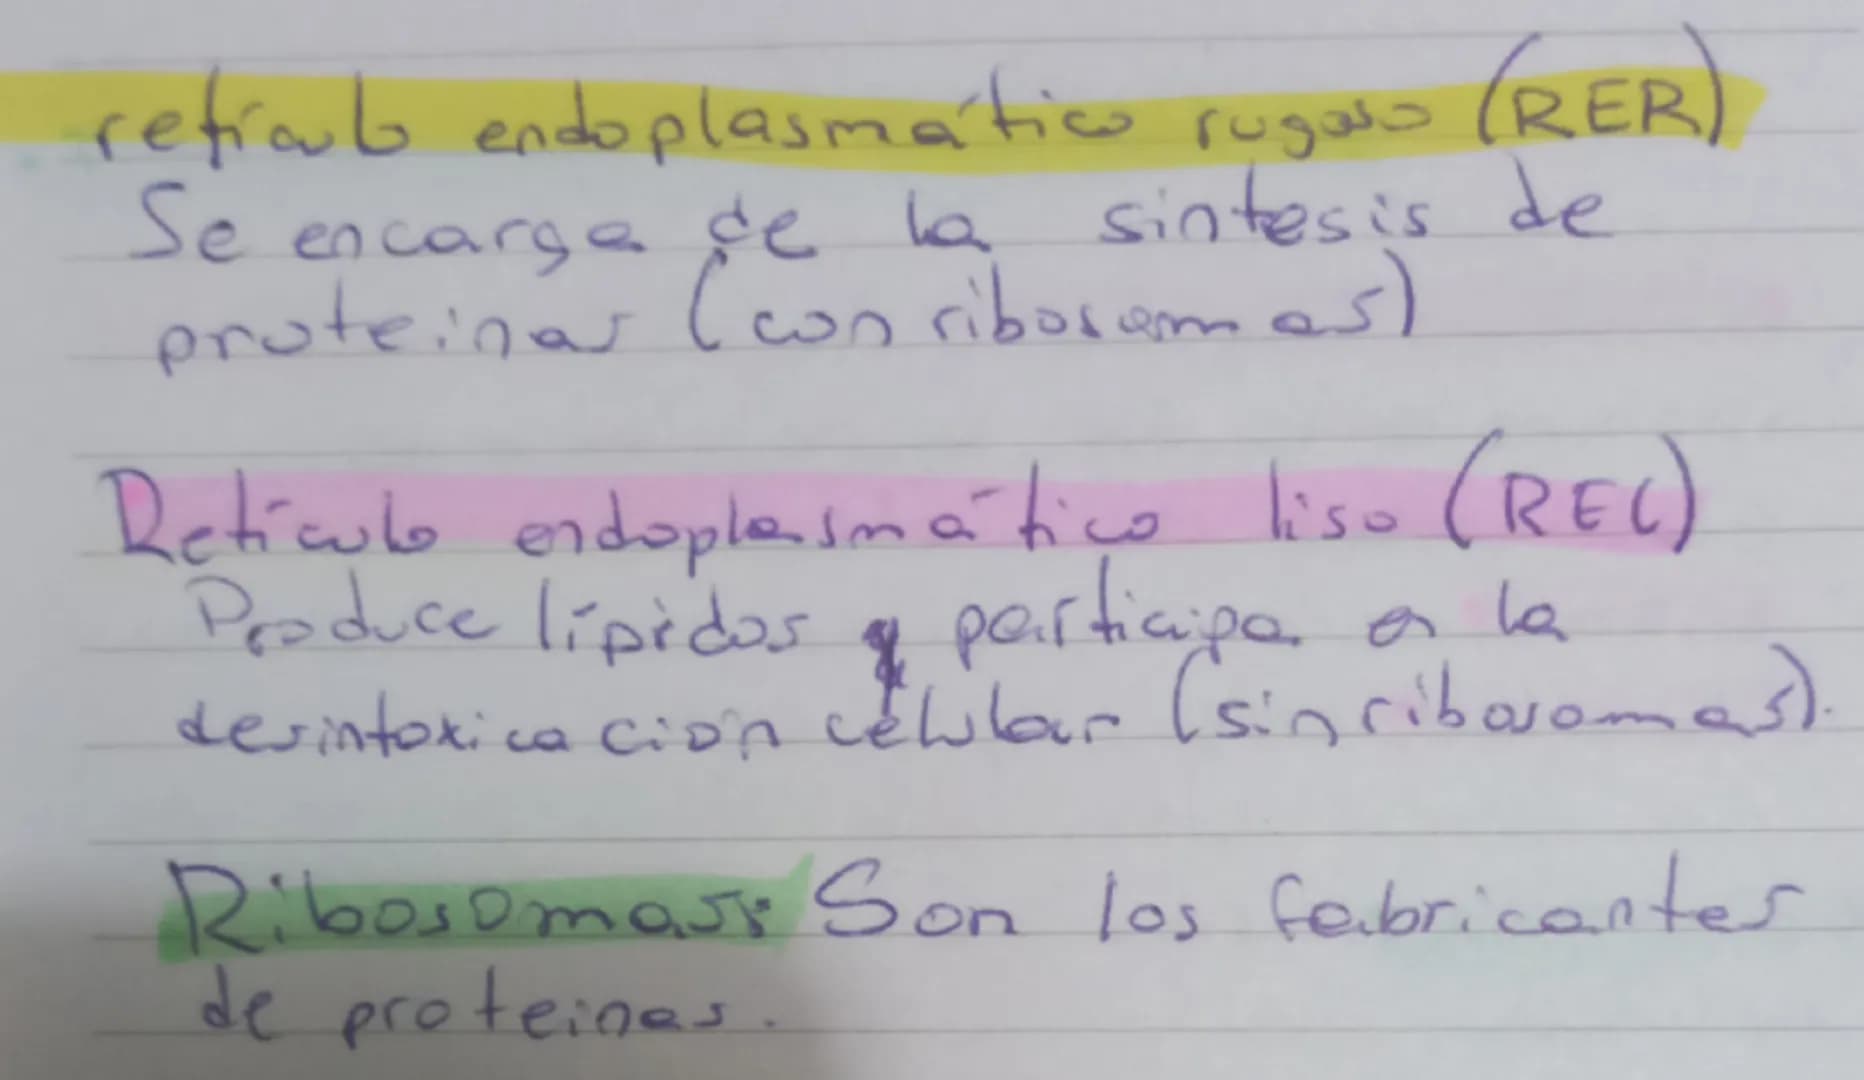 retículo endoplasmático rugoso (RER)
Se encarga de la sintesis de
proteinas (con ribosomas)
Retículo endoplasmático liso (REL)
Produce lípidos y participa en la
desintoxicacación célular (sin ribosomas).
Ribosomas: Son los fabricantes
de proteinas.